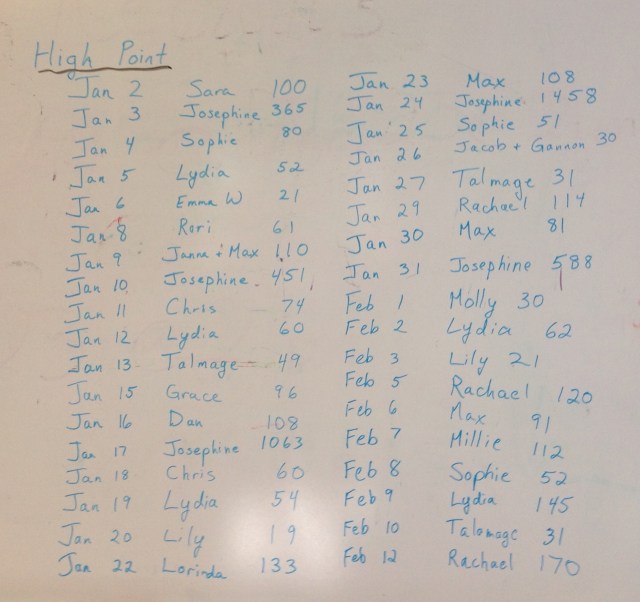 High Point
Jan 2 Sara 100
Jan 3 Josephine 365
Jan 4 Sophie 80
Jan 5 Lydia 52
Jan 6 Emma W 21
Jan 8 Rori 61
Jan 9 Janna + Max 110
Jan 10 Josephine 451
Jan 11 Chris 74
Jan 12 Lydia 60
Jan 13 Talmage 49
Jan 15 Grace 96
Jan 16 Dan 108
Jan 17 Josephine 1063
Jan 18 Chris 60
Jan 19 Lydia 54
Jan 20 Lily 19
Jan 22 Lorinda 133
Jan 23 Max 108
Jan 24 Josephine 1458
Jan 25 Sophie 51
Jan 26 Jacob + Gannon 30
Jan 27 Talmage 31
Jan 29 Rachael 114
Jan 30 Max 81
Jan 31 Josephine 588
Feb 1 Molly 30
Feb 2 Lydia 62
Feb 3 Lily 21
Feb 5 Rachael 120
Feb 6 Max 91
Feb 7 Millie 112
Feb 8 Sophie 52
Feb 9 Lydia 145
Feb 10 Talmage 31
Feb 12 Rachael 170